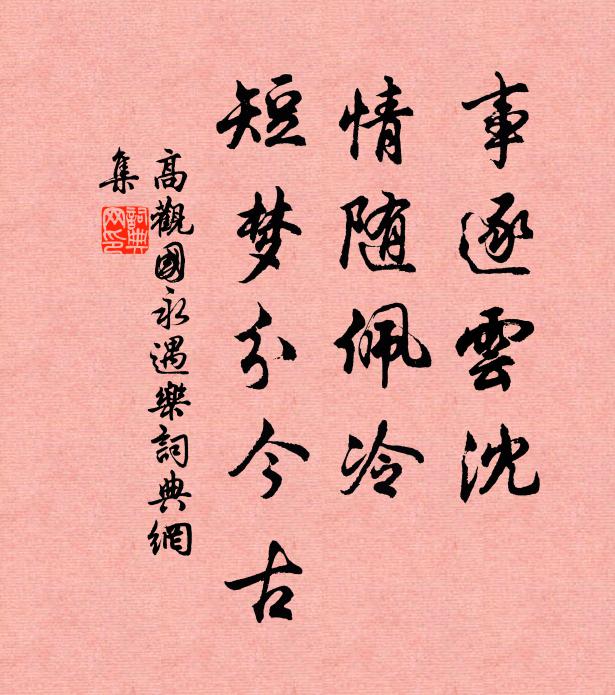 事逐雲沈
情随佩冷
短梦分今古
高觀國永遇樂詞典網
集
詞典
网印